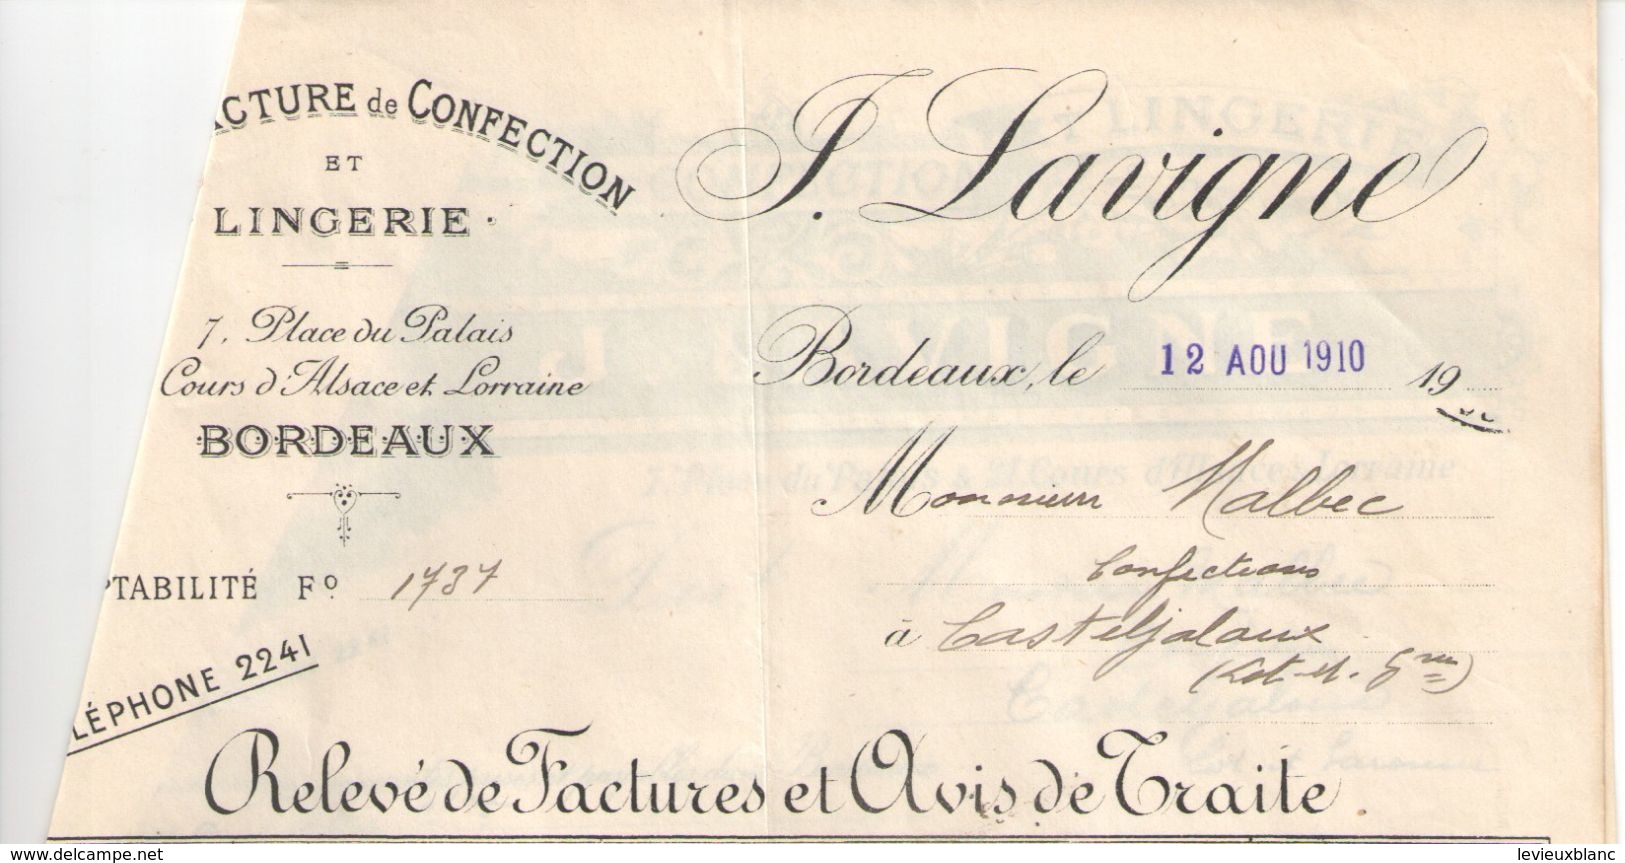 CTURE de CONFECTION
ET
LINGERIE
7, Place du Palais
Cours d'Alsace et Lorraine
BORDEAUX
PTABILITÉ Fº 1737
LÉPHONE 2241
J. Lavigne
Bordeaux, le 12 AOU 1910 19
Monsieur Malbec
Confections
à Casteljaloux
(Lot-et-Gne)
Relevé de Factures et Avis de Traite
delcampe.net
levieuxblanc